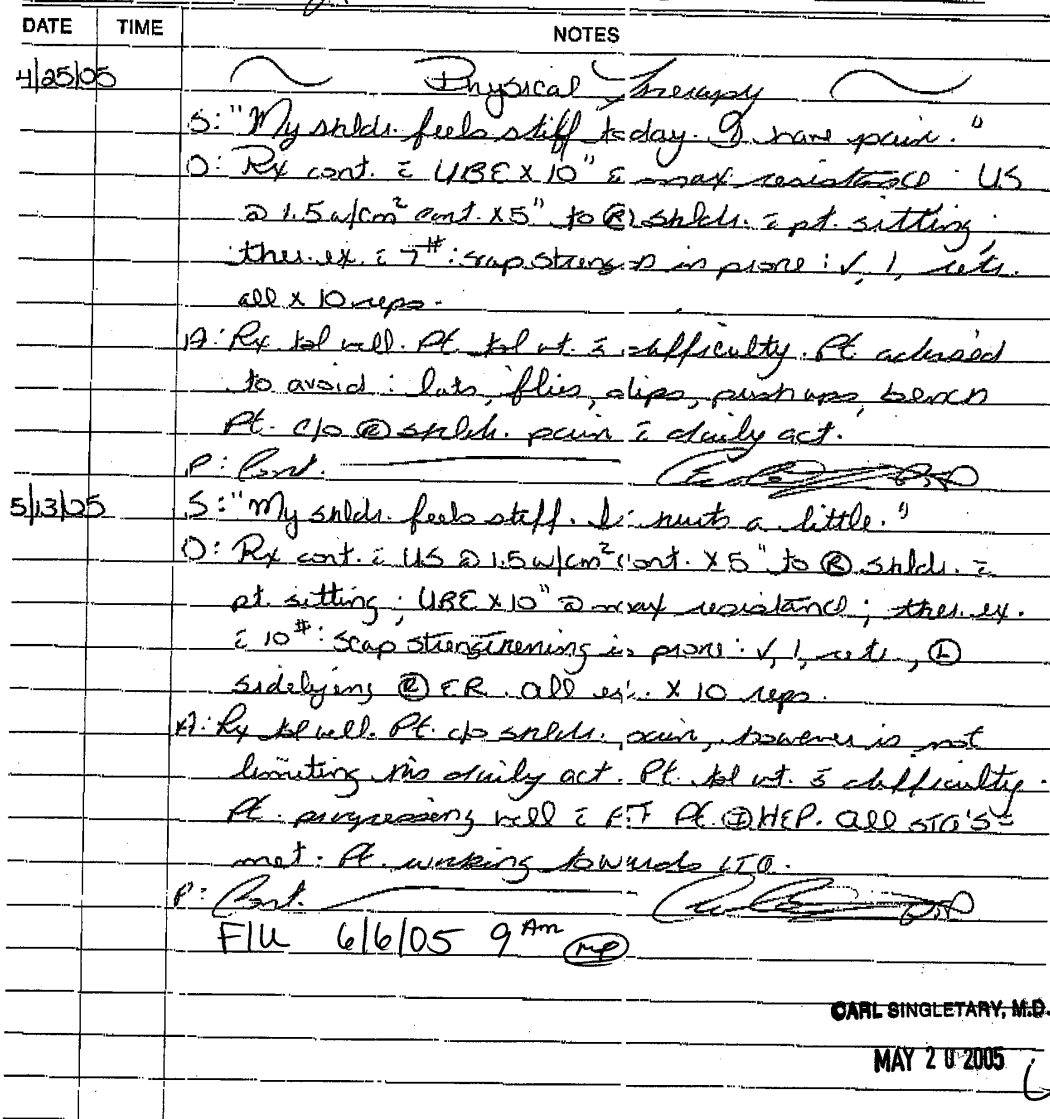 DATE TIME NOTES
4/25/05 Physical Therapy
S: "My shldr. feels stiff today. I have pain."
O: Rx cont. c̄ UBE X 10" c̄ max resistance. US
@ 1.5 w/cm² cont. X5" to Ⓡ shldr. c̄ pt. sitting;
ther. ex. c̄ 7#: scap in prone: √, l,
all x 10 reps.
A: Rx tol well. Pt. tol wt. difficulty. Pt. advised
to avoid: lats, flies, dips, push ups, bench
Pt. c/o Ⓡ shldr. pain c̄ daily act.
P: Cont.
5/13/05 S: "My shldr. feels stiff. It hurts a little."
O: Rx cont. c̄ US @ 1.5 w/cm² cont. X5" to Ⓡ shldr. c̄
pt. sitting; UBE X 10" @ max resistance; ther. ex.
c̄ 10#: scap strengthening in prone: √, l, Ⓛ
sidelying Ⓡ ER. all X 10 reps.
A: Rx tol well. Pt. c/o shldr. pain, however is not
limiting his daily act. Pt. tol wt. s̄ difficulty.
Pt. progressing well c̄ Pt. Ⓘ HEP. All STG's
met. Pt. working towards LTG.
P: Cont.
F/U 6/6/05 9 AM
CARL SINGLETARY, M.D.
MAY 20 2005